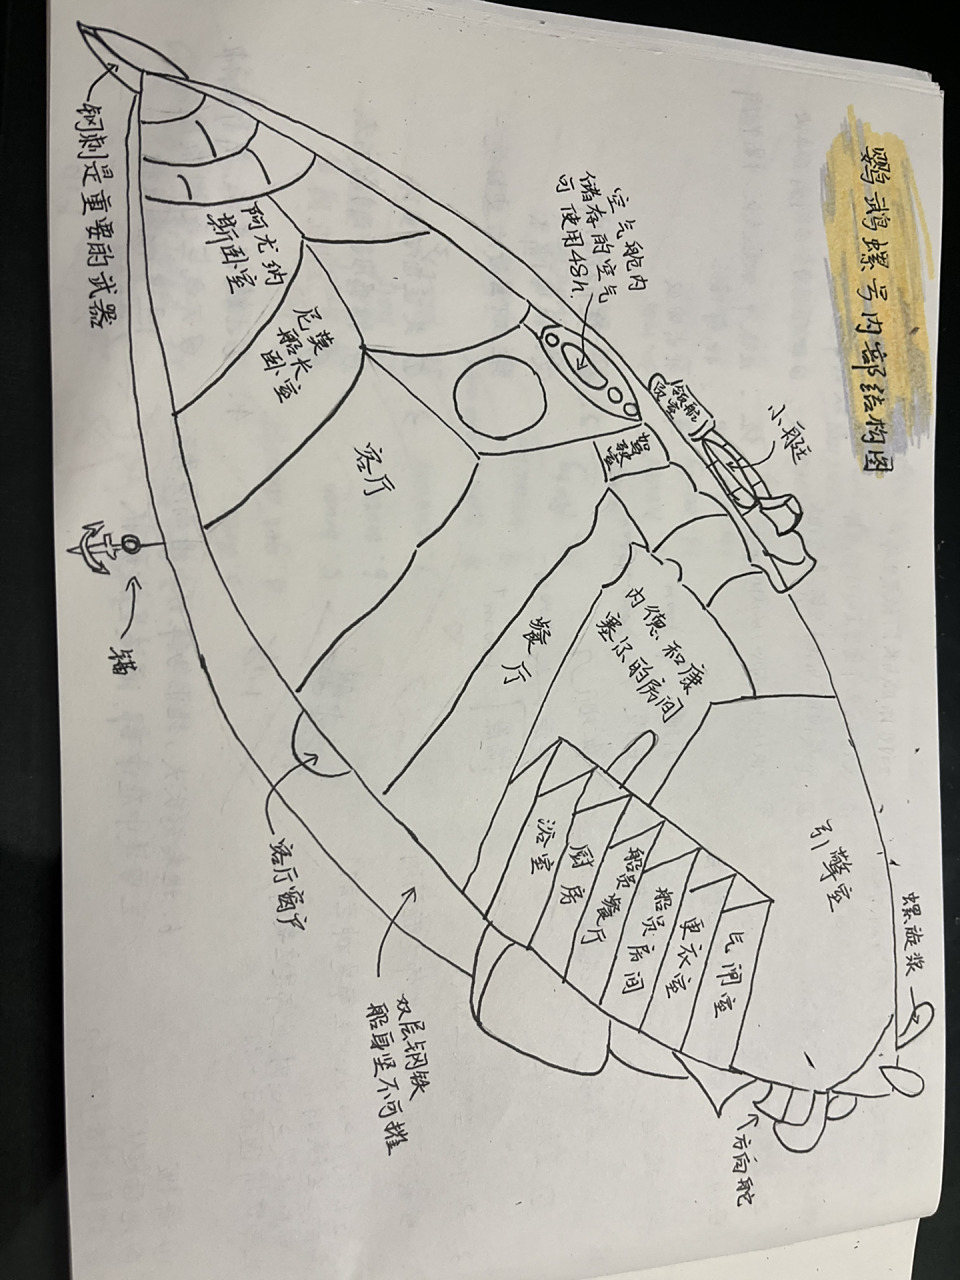 鹦鹉螺号内部结构图
小艇
领航
空气舱内
储存的空气
可使用48h.
钢刺是重要的试器
阿尤纳
斯卧室
尼莫
船长
卧室
客厅
餐厅
内德和康
塞尔的房间
浴室
厨房
船员餐厅
船员房间
更衣室
气闸室
引擎室
螺旋浆
方向舵
锚
客厅窗户
双层钢铁
船身坚不可摧